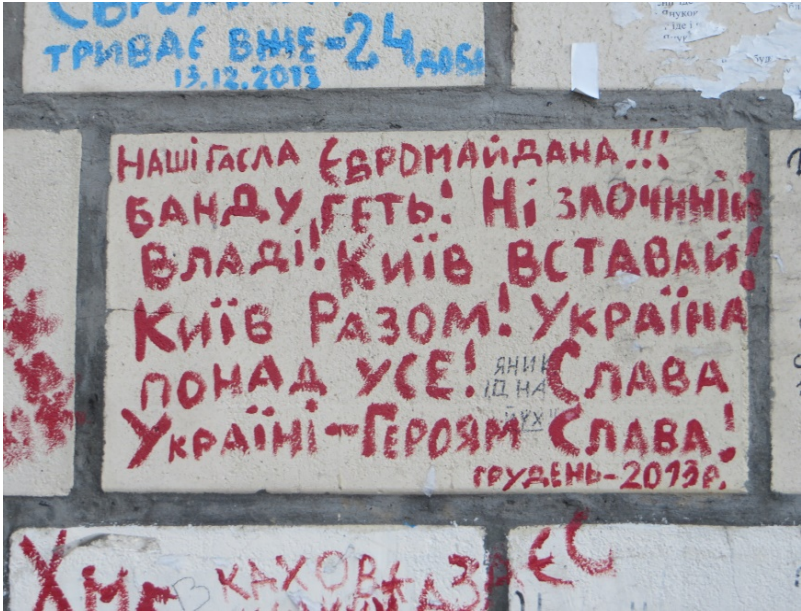 ТРИВАЄ ВЖЕ-24 ДОБИ
13.12.2013
НАШІ ГАСЛА ЄВРОМАЙДАНА!!!
БАНДУ ГЕТЬ! НІ ЗЛОЧИННІЙ
ВЛАДІ! КИЇВ ВСТАВАЙ!
КИЇВ РАЗОМ! УКРАЇНА
ПОНАД УСЕ! СЛАВА
УКРАЇНІ-ГЕРОЯМ СЛАВА!
ГРУДЕНЬ-2013р.
КАХОВКА ЗДЄСЬ